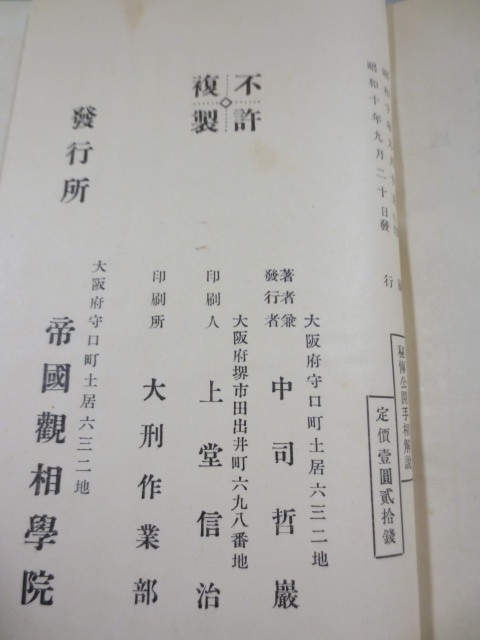 昭和十年九月二十日發行
秘傳公開手相解説
定價壹圓貳拾錢
不許
複製
大阪府守口町土居六三二地
著者兼
發行者
中司哲巖
大阪府堺市田出井町六九八番地
印刷人
上堂信治
印刷所
大刑作業部
大阪府守口町土居六三二地
發行所
帝國觀相學院